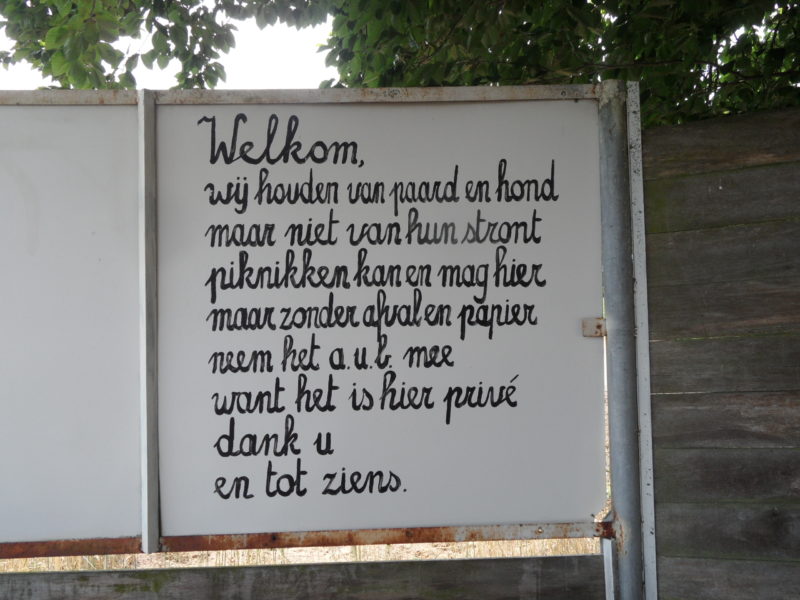 Welkom,
wij houden van paard en hond
maar niet van hun stront
piknikken kan en mag hier
maar zonder afval en papier
neem het a.u.b. mee
want het is hier privé
dank u
en tot ziens.